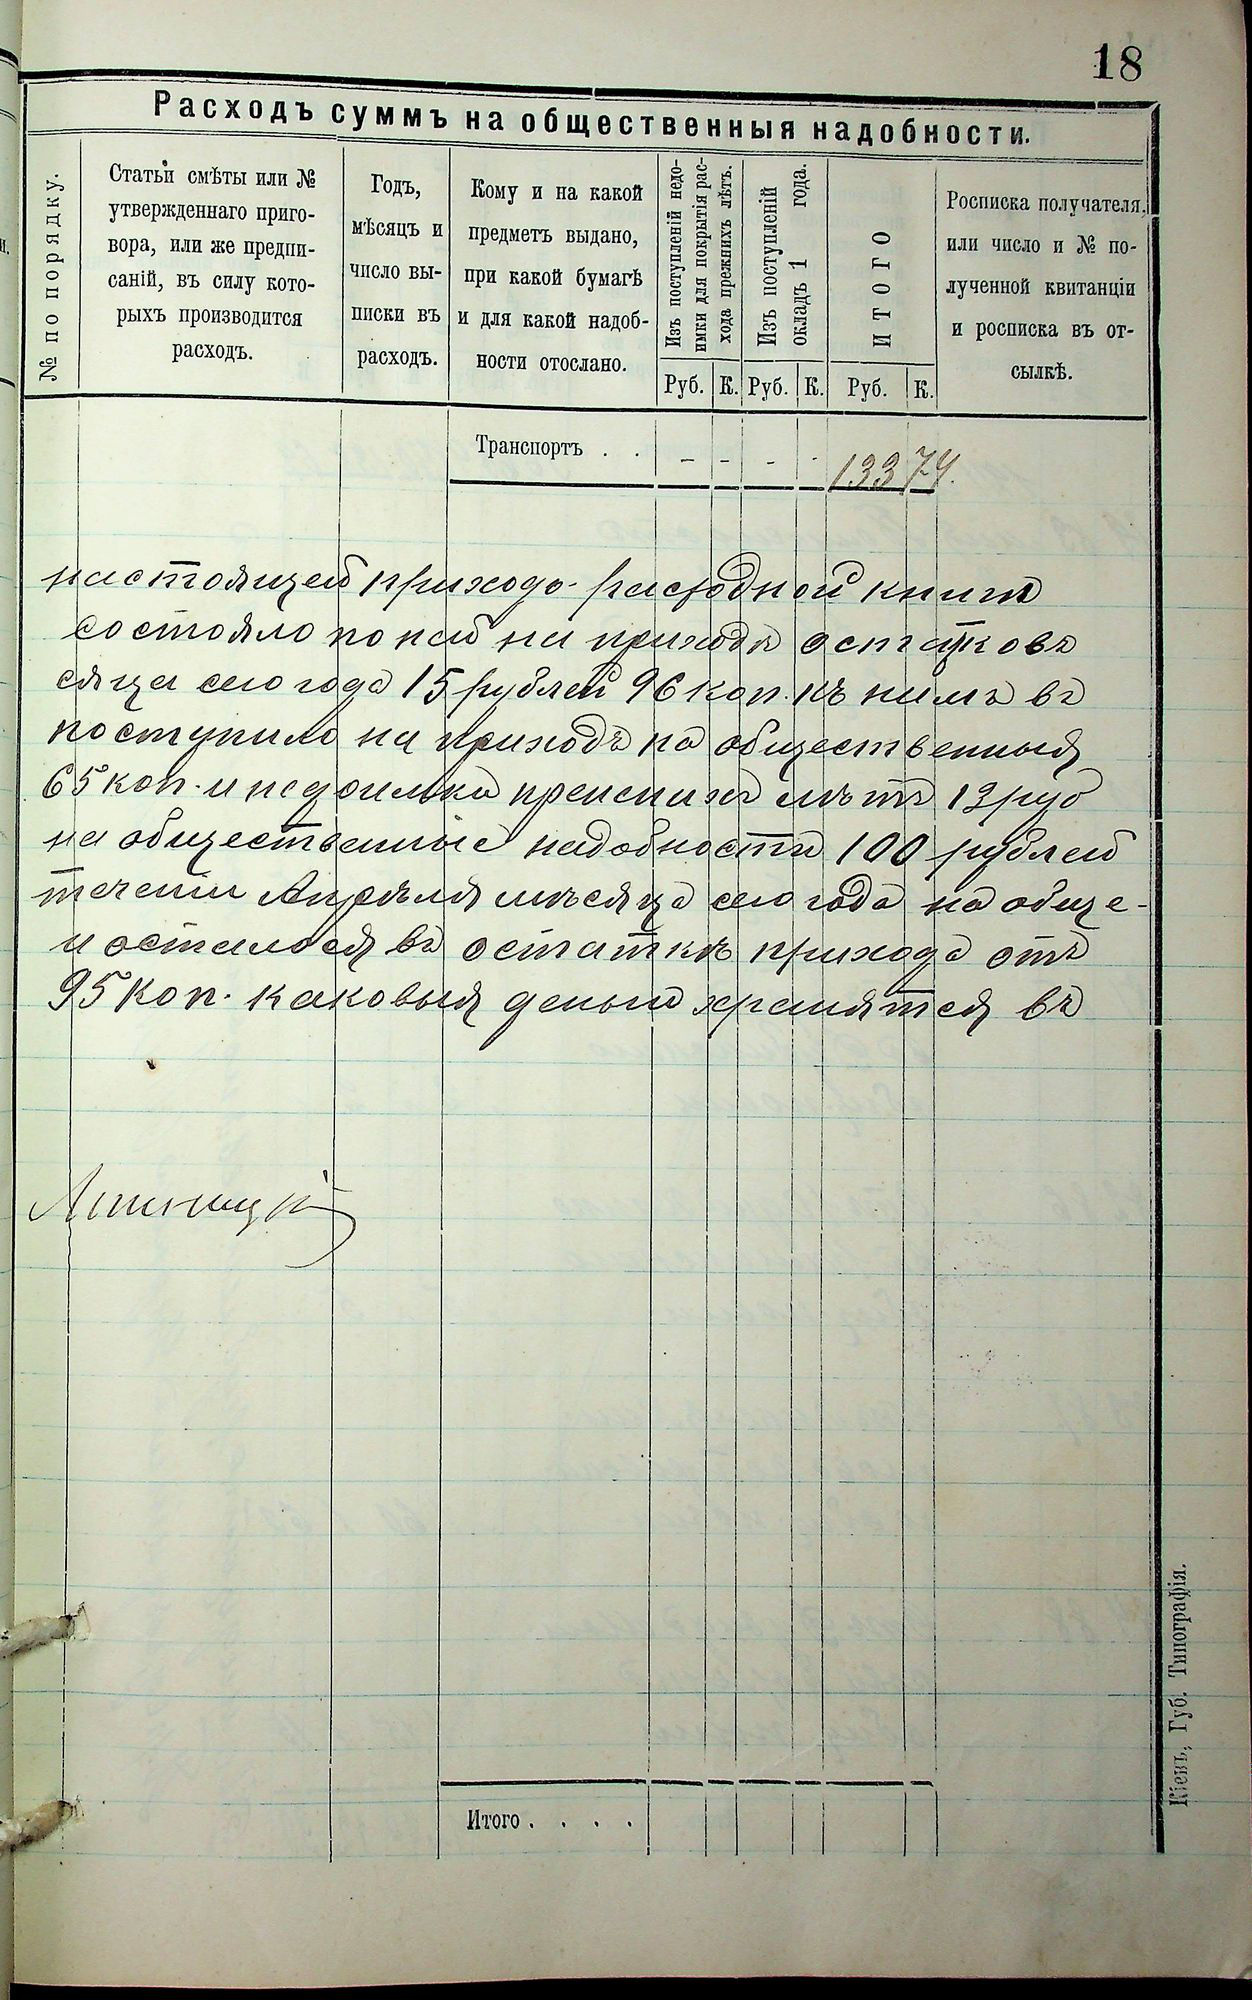 18
Расходъ суммъ на общественныя надобности.
№ по порядку.
Статьи смѣты или №
утвержденнаго приго-
вора, или же предпи-
саній, въ силу кото-
рыхъ производится
расходъ.
Годъ,
мѣсяцъ и
число вы-
писки въ
расходъ.
Кому и на какой
предметъ выдано,
при какой бумагѣ
и для какой надоб-
ности отослано.
Изъ поступленій недо-
имки для покрытія рас-
хода прежнихъ лѣтъ.
Изъ поступленій
окладъ 1 года.
ИТОГО
Росписка получателя,
или число и № по-
лученной квитанціи
и росписка въ от-
сылкѣ.
Руб. К. Руб. К. Руб. К.
Транспортъ . . – – – - 133 74.
настоящей приходо-расходной книги
состояло по ней на приходѣ остатковъ
сяца сего года 15 рублей 96 коп. къ нимъ въ
поступило на приходъ на общественныя
65 коп. и недоимки прежнихъ лѣтъ 13 руб
на общественные надобности 100 рублей
теченіи Апрѣля мѣсяца сего года на обще-
и осталося въ остаткѣ прихода отъ
95 коп. каковыя деньги хранятся въ
Итого . . . .
Кіевъ, Губ. Типографія.